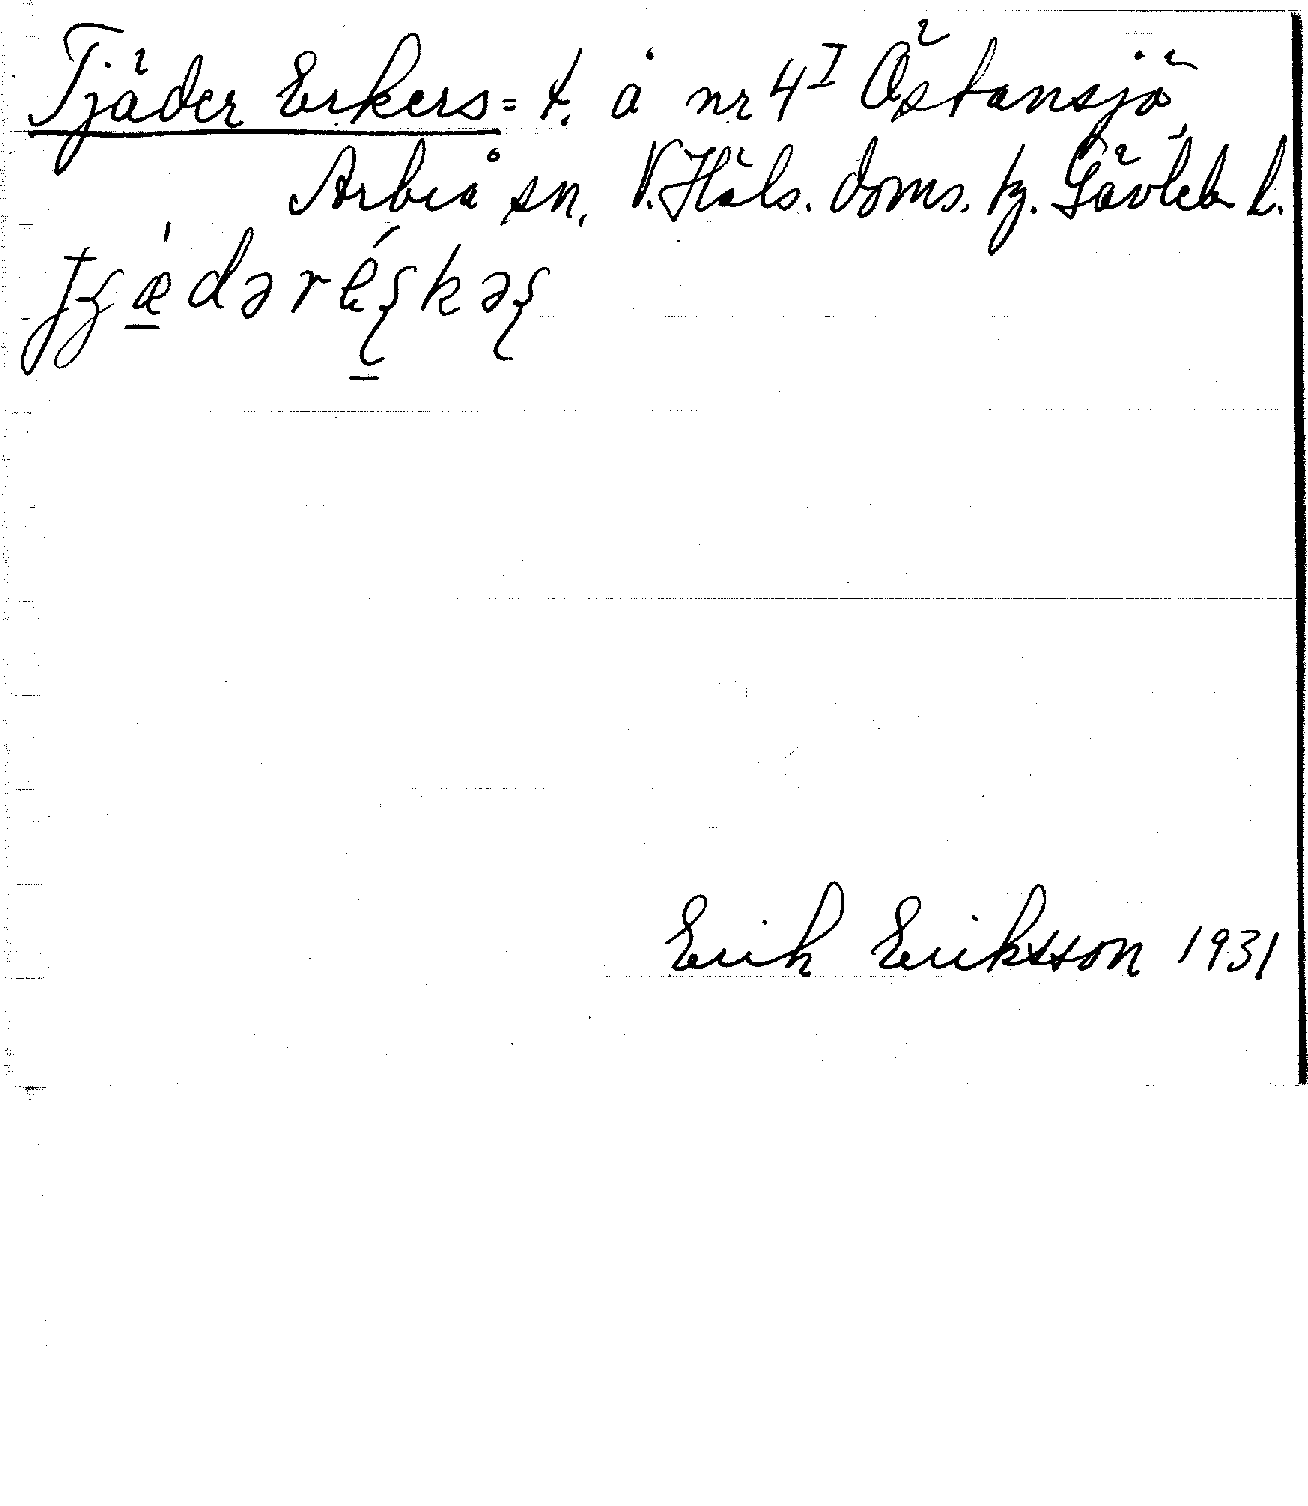 Tjäder Erkers = t. å nr 4I Östansjö,
Arbrå sn, V. Häls. doms. tg. Gävleb l.
Erik Eriksson 1931